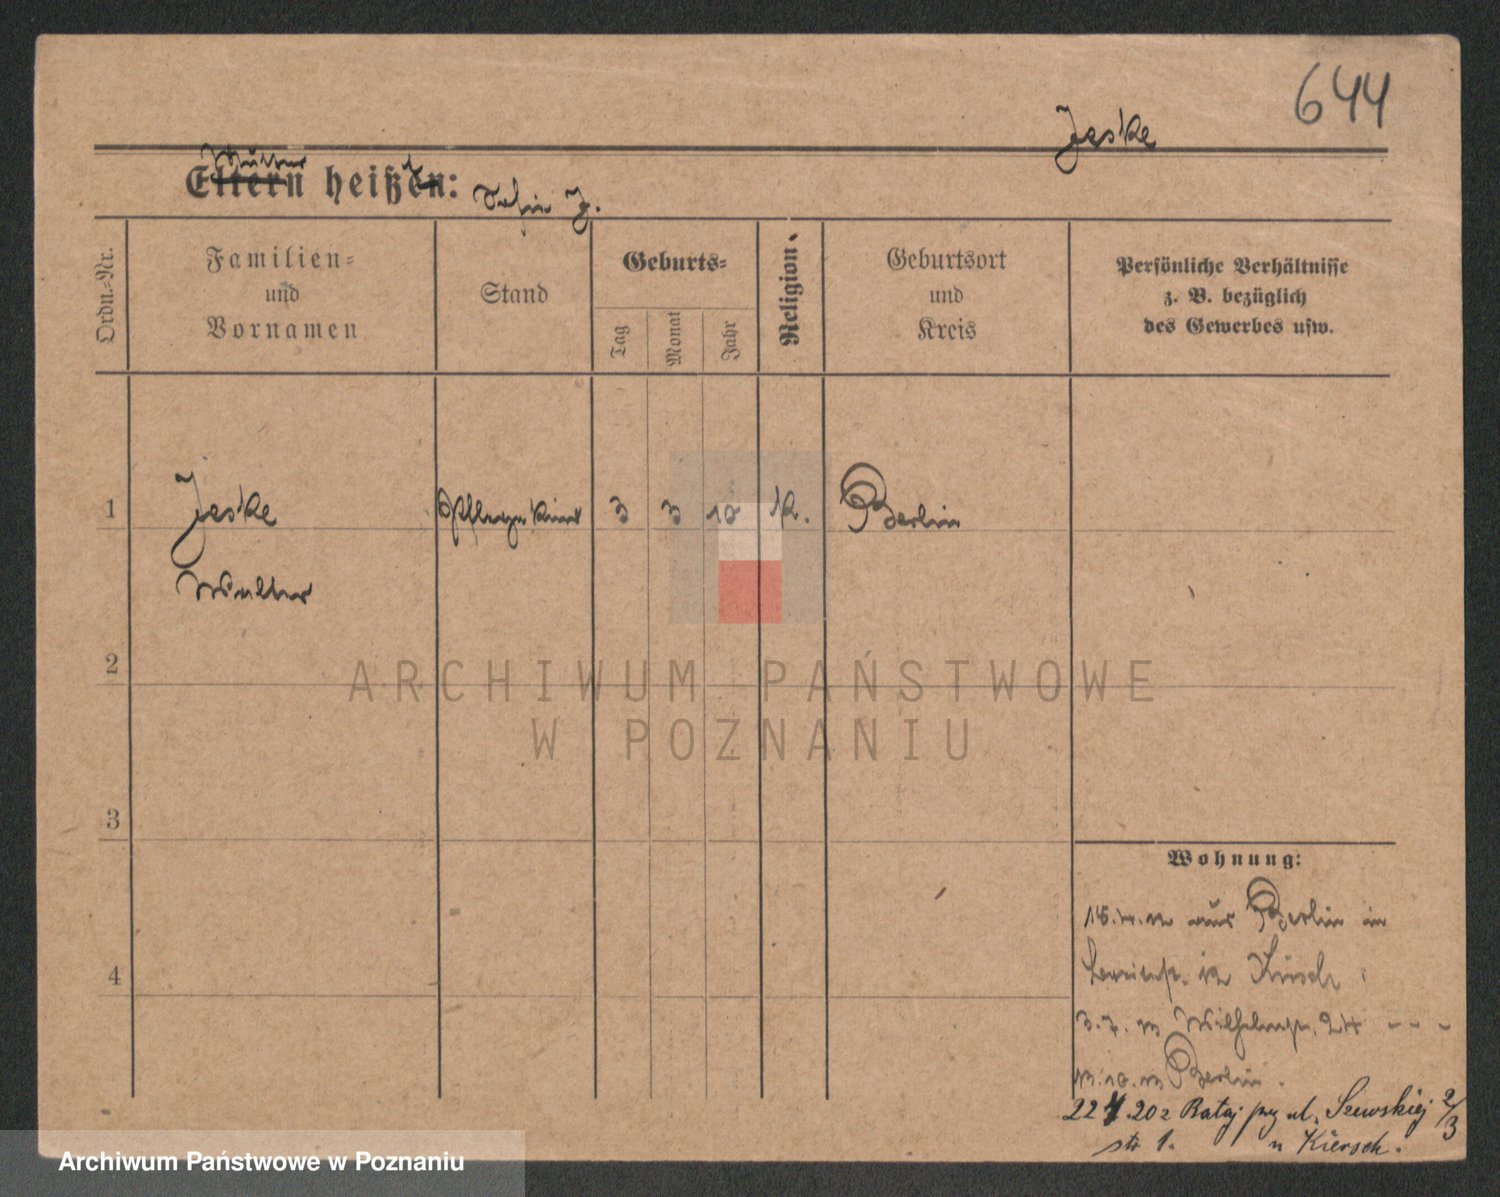 644
Jeske
Mutter
Eltern heißen:
Familien-
und
Vornamen
Ordn.-Nr.
Stand
Geburts-
Tag
Monat
Jahr
Religion.
Geburtsort
und
Kreis
Persönliche Verhältnisse
z. B. bezüglich
des Gewerbes usw.
1
Jeske
Pflegekind
3
3
10
k.
Berlin
Walter
2
ARCHIWUM PAŃSTWOWE
W POZNANIU
3
4
Wohnung:
aus Berlin in
Kirsch
3.7.13 Wilhelmstr. 24 - - -
13.10.13 Berlin.
20 z Rataj przy ul. Szewskiej 2/3
str 1. u Kiersch.
Archiwum Państwowe w Poznaniu